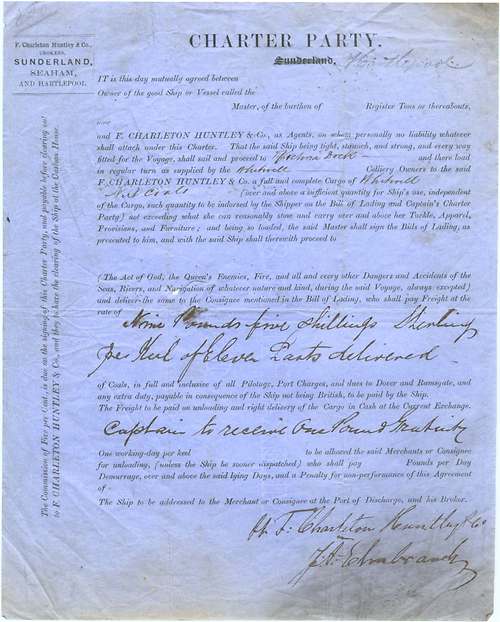 F. Charleton Huntley & Co.,
BROKERS,
SUNDERLAND,
SEAHAM,
AND HARTLEPOOL.
CHARTER PARTY.
Sunderland,
IT is this day mutually agreed between
Owner of the good Ship or Vessel called the
Master, of the burthen of Register Tons or thereabouts,
now
and F. CHARLETON HUNTLEY & Co., as Agents, on whom personally no liability whatever
shall attach under this Charter. That the said Ship being tight, staunch, and strong, and every way
fitted for the Voyage, shall sail and proceed to Victoria Dock and there load
in regular turn as supplied by the Whitwell Colliery Owners to the said
F. CHARLETON HUNTLEY & Co. a full and complete Cargo of Whitwell
Nut Coals (over and above a sufficient quantity for Ship's use, independent
of the Cargo, such quantity to be indorsed by the Shipper on the Bill of Lading and Captain's Charter
Party) not exceeding what she can reasonably stone and carry over and above her Tackle, Apparel,
Provisions, and Furniture; and being so loaded, the said Master shall sign the Bills of Lading, as
presented to him, and with the said Ship shall therewith proceed to
(The Act of God, the Queen's Enemies, Fire, and all and every other Dangers and Accidents of the
Seas, Rivers, and Navigation of whatever nature and kind, during the said Voyage, always excepted)
and deliver the same to the Consignee mentioned in the Bill of Lading, who shall pay Freight at the
rate of
Nine Pounds five shillings Sterling
per Keel of Eleven Lasts delivered
of Coals, in full and inclusive of all Pilotage, Port Charges, and dues to Dover and Ramsgate, and
any extra duty, payable in consequence of the Ship not being British, to be paid by the Ship.
The Freight to be paid on unloading and right delivery of the Cargo in Cash at the Current Exchange.
Captain to receive One Pound Gratuity
One working-day per keel to be allowed the said Merchants or Consignee
for unloading, (unless the Ship be sooner dispatched) who shall pay Pounds per Day
Demurrage, over and above the said lying Days, and a Penalty for non-performance of this Agreement
of
The Ship to be addressed to the Merchant or Consignee at the Port of Discharge, and his Broker.
F. Charleton Huntley & Co
The Commission of Five per Cent., is due on the signing of this Charter Party, and payable before clearing out
to F. CHARLETON HUNTLEY & Co., and they to have the clearing of the Ship at the Custom House.